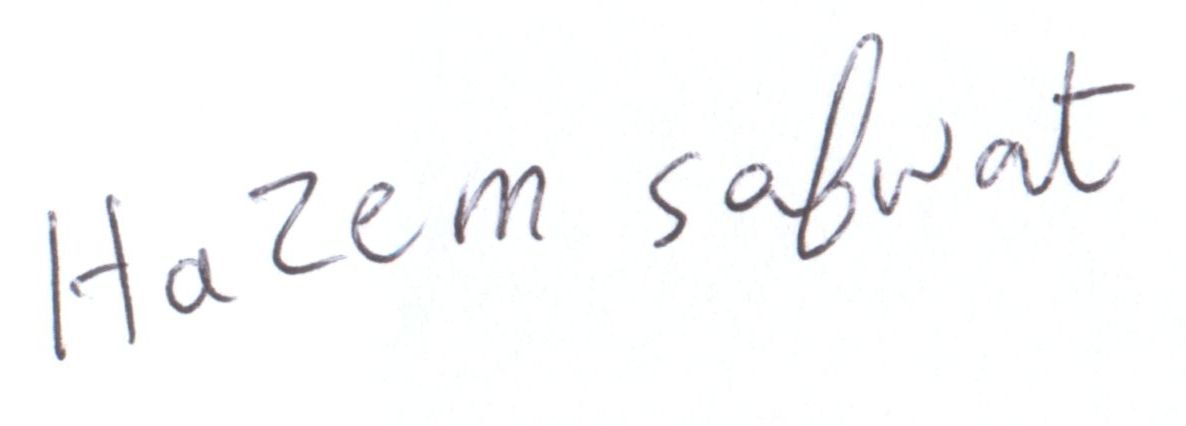 Hazem safwat